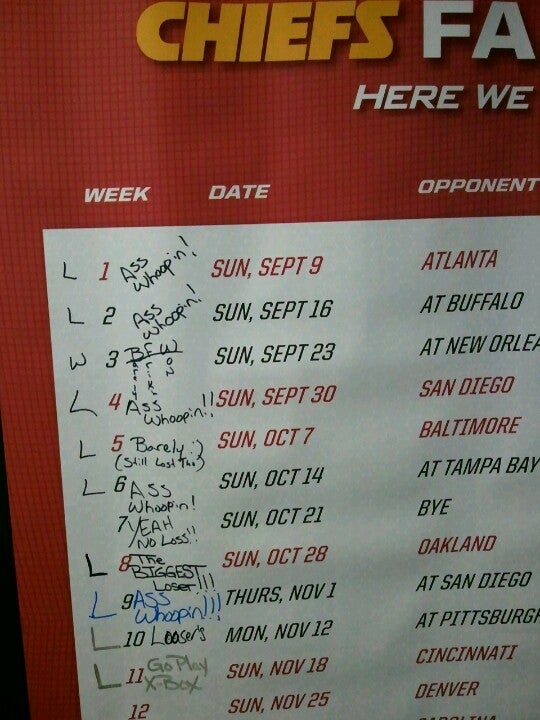 CHIEFS FA
HERE WE
WEEK DATE OPPONENT
L 1 Ass Whoopin! SUN, SEPT 9 ATLANTA
L 2 Ass Whoopin! SUN, SEPT 16 AT BUFFALO
W 3 Won SUN, SEPT 23 AT NEW ORLEA
L 4 Ass Whoopin!! SUN, SEPT 30 SAN DIEGO
L 5 Barely :) (Still Lost Tho) SUN, OCT 7 BALTIMORE
L 6 Ass Whoopin! SUN, OCT 14 AT TAMPA BAY
7 YEAH No Loss!! SUN, OCT 21 BYE
L 8 The BIGGEST Loser!!! SUN, OCT 28 OAKLAND
L 9 Ass Whoopin!!! THURS, NOV 1 AT SAN DIEGO
L 10 Looser's MON, NOV 12 AT PITTSBURGH
L 11 Go Play X-Box SUN, NOV 18 CINCINNATI
12 SUN, NOV 25 DENVER
CAROLINA